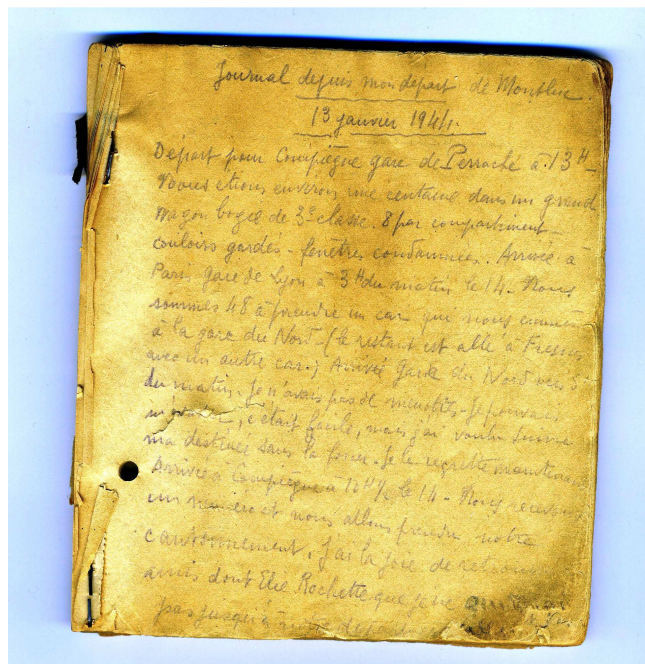 Journal depuis mon départ de Montluc.
13 janvier 1944.
Départ pour Compiègne gare de Perrache à 13 H_
Nous étions environ une centaine dans un grand
wagon bogee de 3e classe. 8 par compartiment_
couloirs gardés - fenêtres condamnées. Arrivée à
Paris gare de Lyon à 3 H du matin le 14. Nous
sommes 48 à prendre un car qui nous emmène
à la gare du Nord (le restant est allé à Fresnes
avec un autre car.) Arrivée gare du Nord vers 5
du matin. Je n'avais pas de menottes - je pouvais
c'était facile, mais j'ai voulu suivre
ma destinée sans la forcer. Je le regrette maintenant
Arrivée à Compiègne à 10 H ½ le 14 - Nous recevons
un numéro et nous allons prendre notre
cantonnement. J'ai la joie de retrouver
amis dont Elie Rochette que je ne
pas jusqu'à